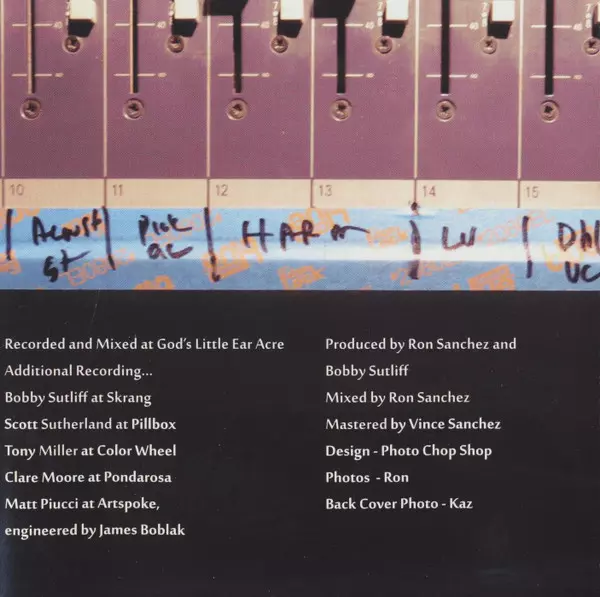 10 11 12 13 14 15
Acoust Pick HARM Dbl
st ac vc
Recorded and Mixed at God's Little Ear Acre
Additional Recording...
Bobby Sutliff at Skrang
Scott Sutherland at Pillbox
Tony Miller at Color Wheel
Clare Moore at Pondarosa
Matt Piucci at Artspoke,
engineered by James Boblak
Produced by Ron Sanchez and
Bobby Sutliff
Mixed by Ron Sanchez
Mastered by Vince Sanchez
Design - Photo Chop Shop
Photos - Ron
Back Cover Photo - Kaz